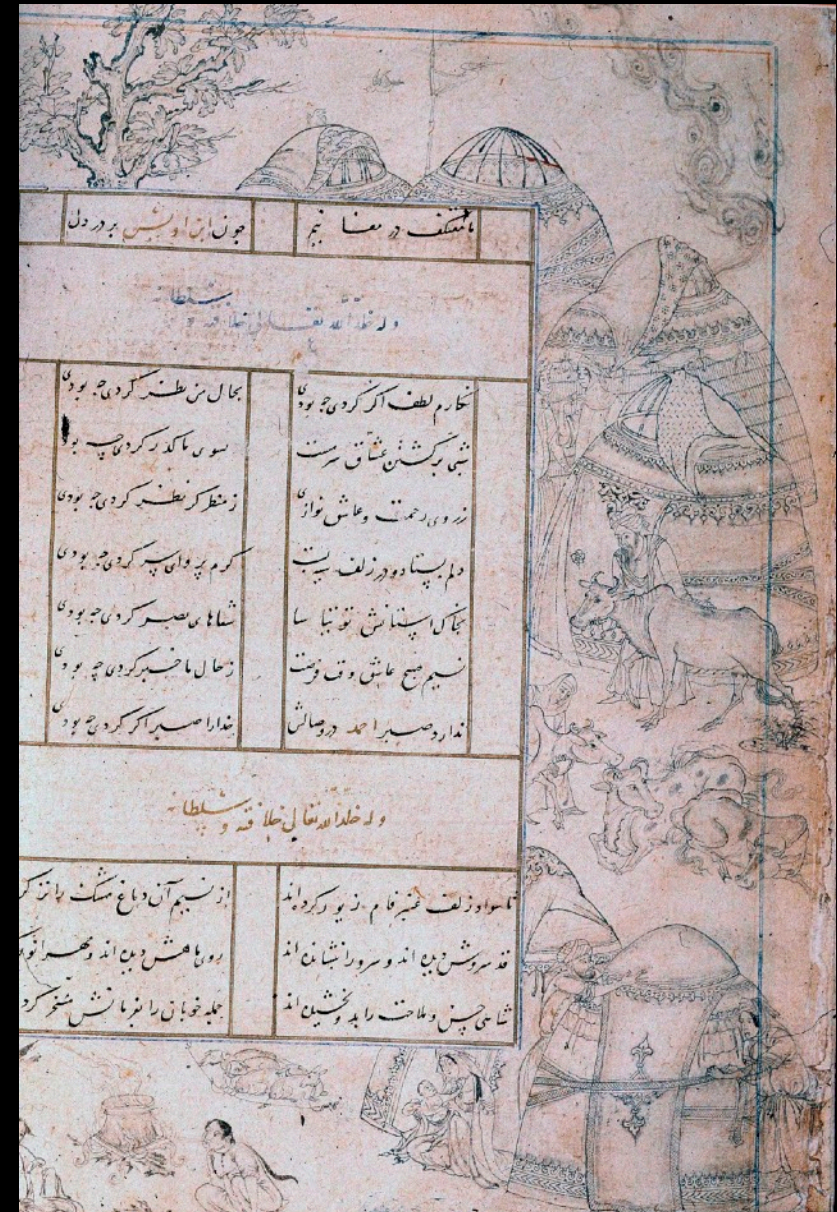 ما معتکف در مغانیم چون ابن اویس بر در دل
وله خلد الله تعالی خلافته و سلطانه
نگارم لطف اگر کردی چه بودی بحال من نظر کردی چه بودی
شبی بر کشتن عشاق سرمست بسوی ما گذر کردی چه بودی
ز روی رحمت و عاشق نوازی ز منظر گر نظر کردی چه بودی
دلم بستاد و در زلف سیه بست کرم پروای سر کردی چه بودی
بخاک استانش توتیا سا شفاهای بصر کردی چه بودی
نسیم صبح عاشق وقت فرصت ز حال ما خبر کردی چه بودی
ندارد صبر احمد در وصالش خدارا صبر اگر کردی چه بودی
وله خلد الله تعالی خلافته و سلطانه
تا سواد زلف عنبر فام زیور کرده اند از نسیم آن دماغ مشک را تر
قد سروش دیده اند و سرو را بنشانده اند روی ماهش دیده اند و مهر انور
شاهی حسن و ملاحت را بدو بخشیده اند جمله خوبان را بفرمانش مسخر کرد